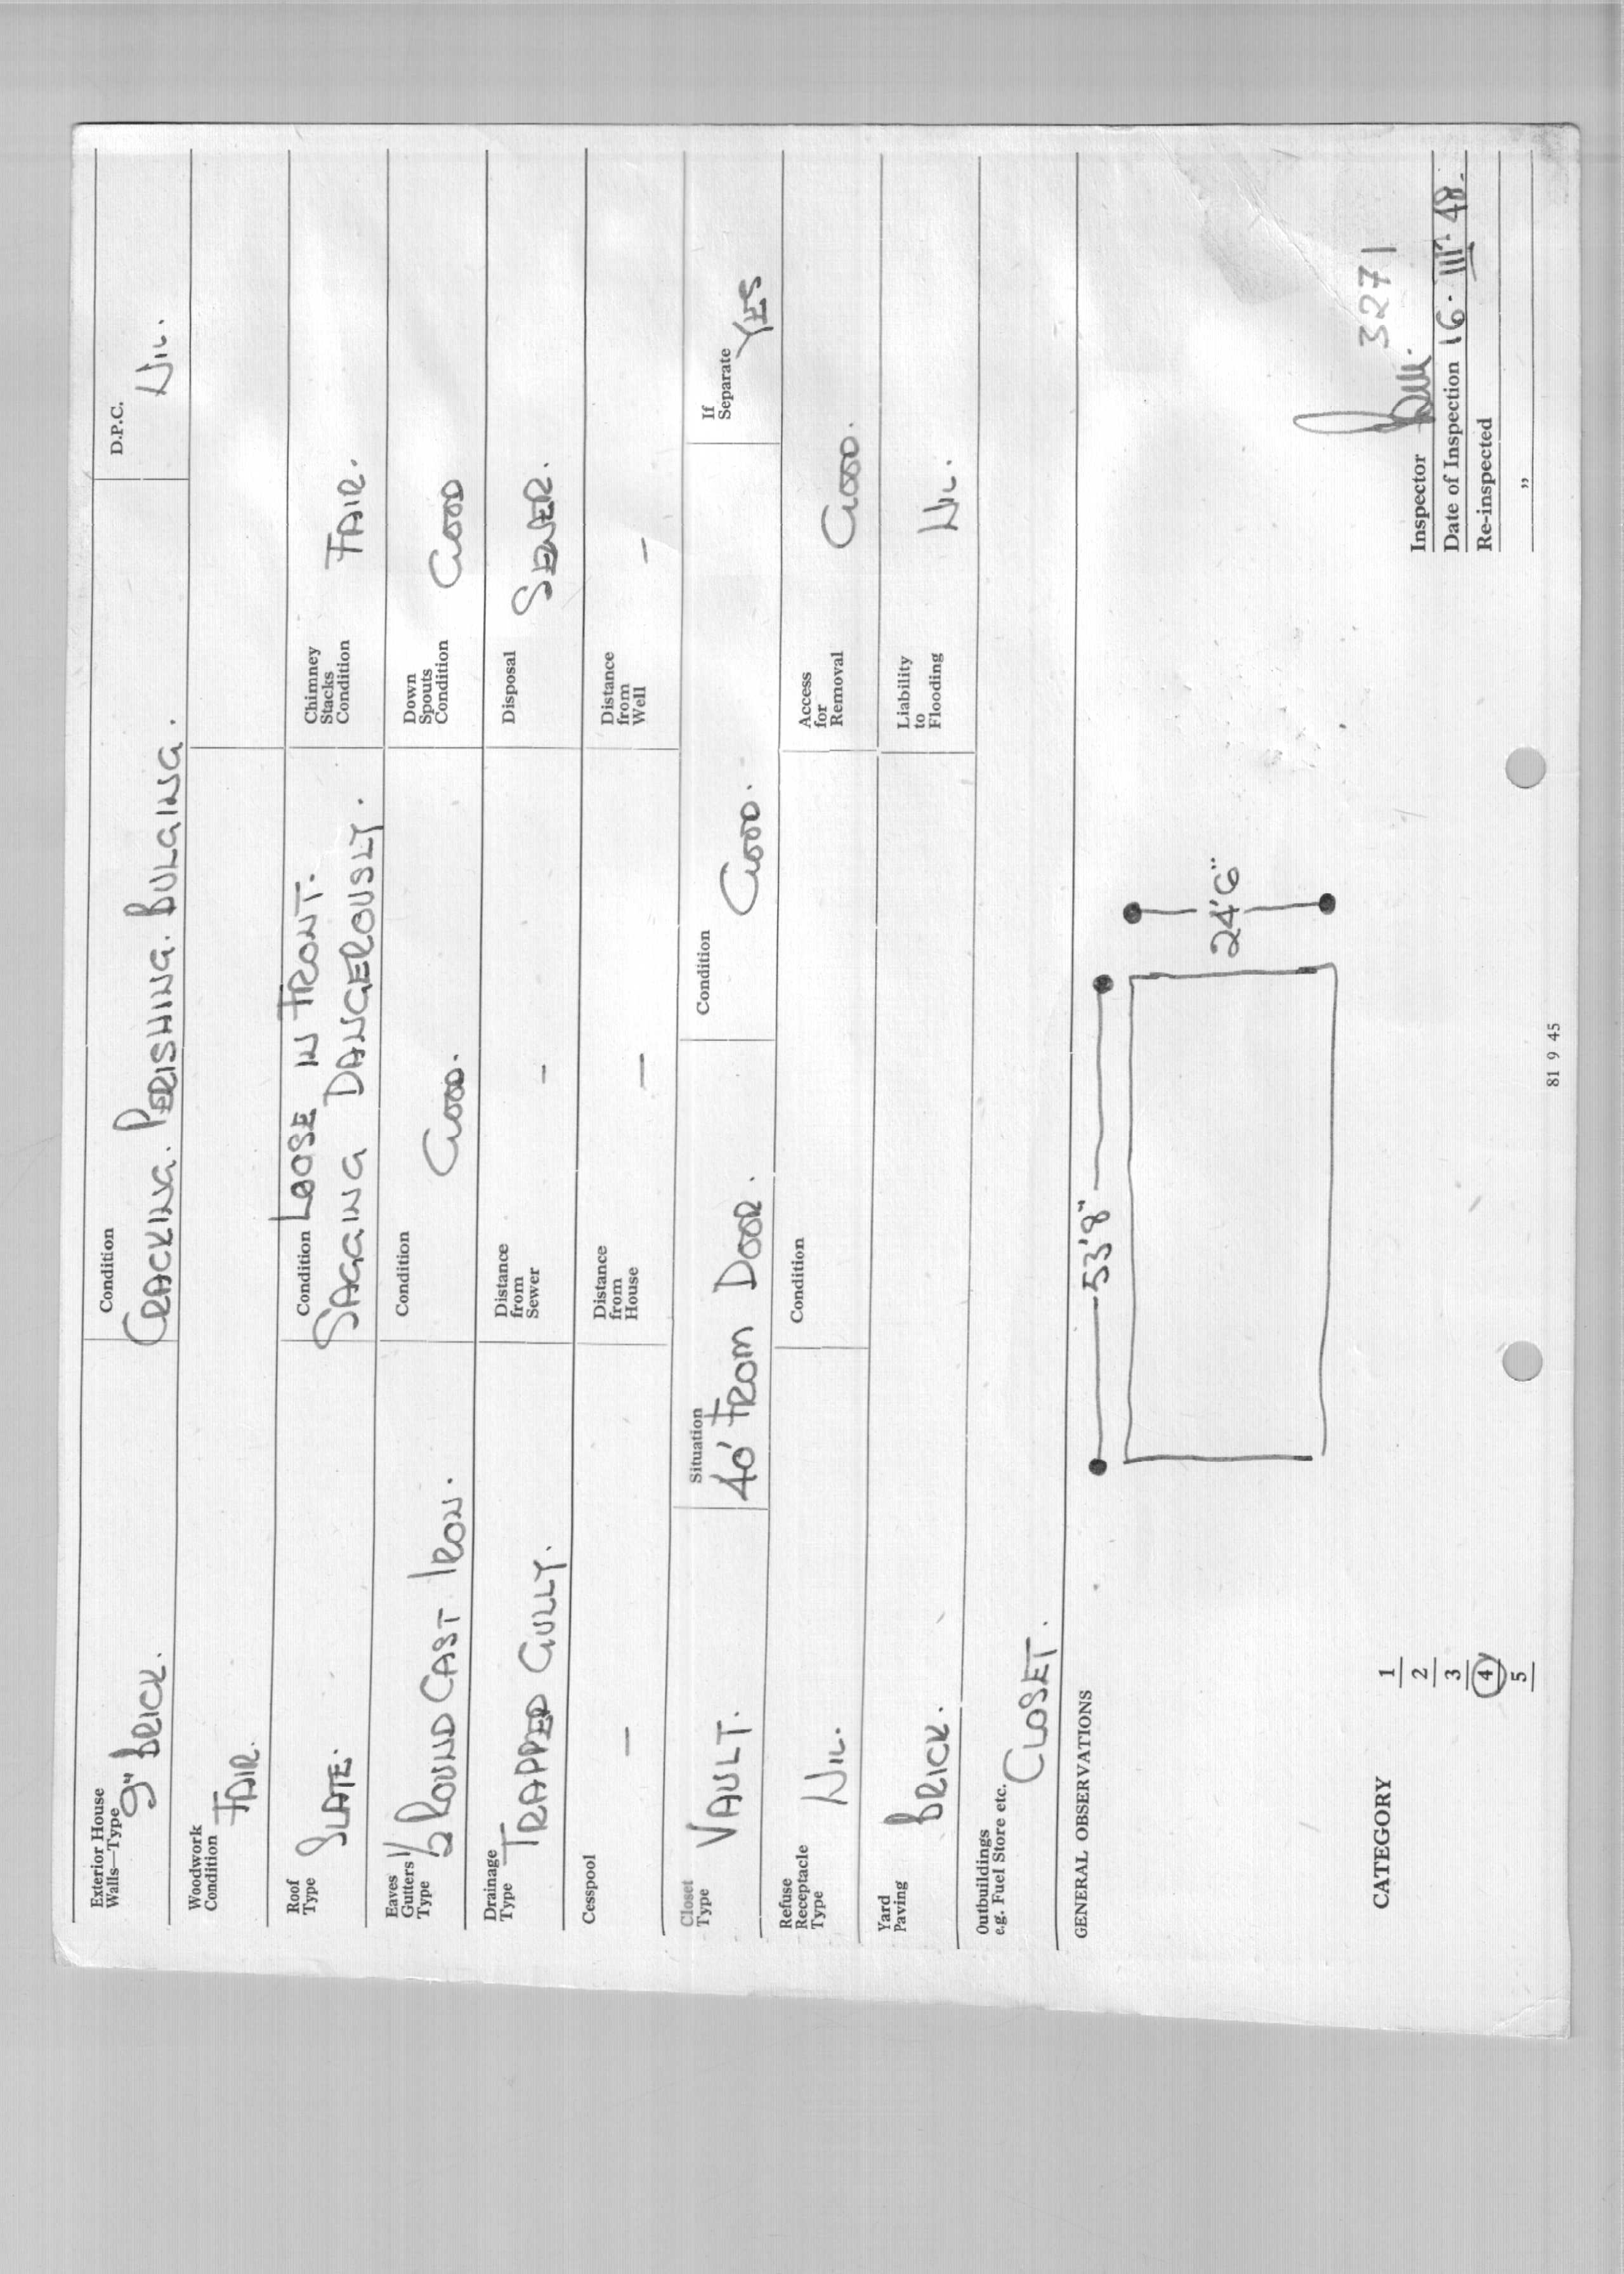 Exterior House Condition D.P.C.
Walls—Type 9" BRICK. CRACKING. PERISHING. BULGING. NIL.
Woodwork
Condition FAIR.
Roof Condition LOOSE IN FRONT. Chimney
Type SLATE. SAGGING DANGEROUSLY. Stacks
Condition FAIR.
Eaves Condition GOOD. Down
Gutters Spouts
Type ½ ROUND CAST IRON. Condition GOOD
Drainage Distance Disposal SEWER.
Type TRAPPED GULLY. from –
Sewer
Cesspool – Distance Distance
from – from –
House Well
Closet Situation Condition If
Type VAULT. 40' FROM DOOR. GOOD. Separate YES
Refuse Condition Access
Receptacle for
Type NIL. Removal GOOD.
Yard Liability
Paving BRICK. to
Flooding NIL.
Outbuildings
e.g. Fuel Store etc. CLOSET.
GENERAL OBSERVATIONS
53'8"
24'6"
3271
CATEGORY 1
2
3
4
5
Inspector
Date of Inspection 16. III. 48.
Re-inspected
"
81 9 45